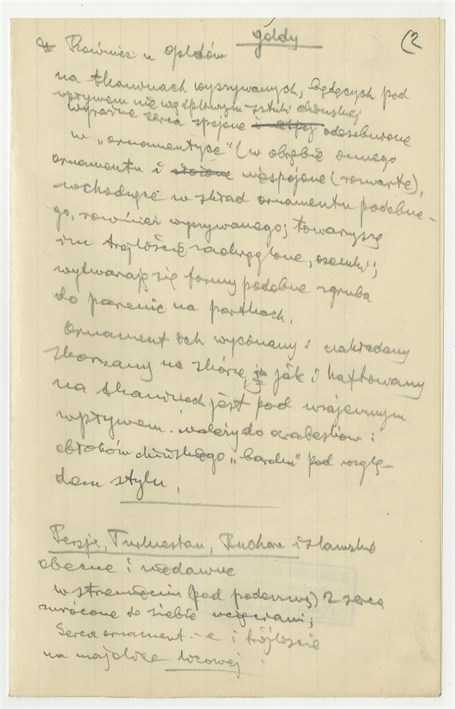 goldy (2
Również u goldów
na tkaninach wyszywanych, będących pod
wpływem niewątpliwym sztuki chińskiej
wyraźne serca spojone i odosobnione
w „ornamentyce" (w obrębie innego
ornamentu i niespojone (rozwarte),
wchodzące w skład ornamentu podobne-
go, również wyszywanego; towarzyszą
im trójliście zaokrąglone,
wytwarzają się formy podobne zgruba
do parzenic na portkach.
Ornament ich wycinany i nakładany
skórzany na skórze, jak i haftowany
na tkaninach jest pod wzajemnym
wpływem. należy do arabesków i
obłoków chińskiego „bardzo" pod wzglę-
dem stylu.
Persja, Turkiestan, Buchara islamska
obecne i niedawne
w strzemieniu (pod podeszwą) 2 serca
zwrócone do siebie wcięciami;
Serca ornament. - e i trójliście
na majolice